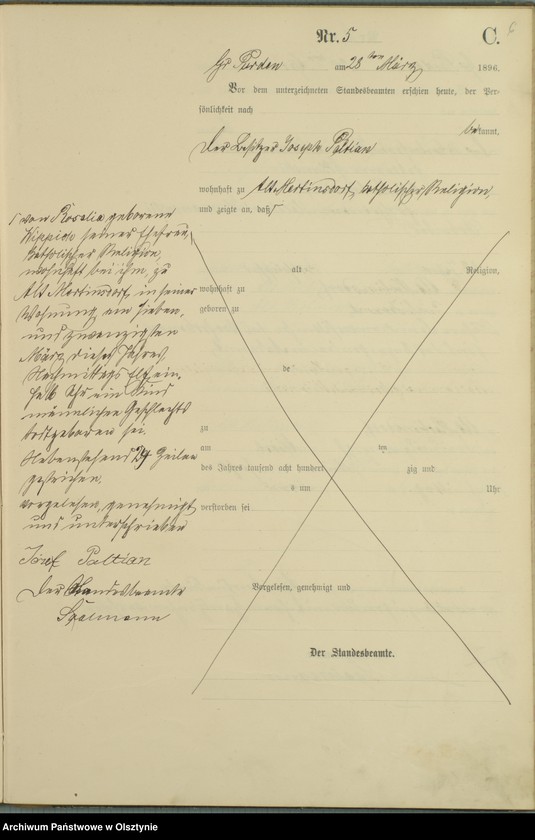 Nr. 5
C.
Gr Purden am 28 ten März 1896.
Vor dem unterzeichneten Standesbeamten erschien heute, der Per-
sönlichkeit nach
bekannt,
der Besitzer Joseph Poltian
wohnhaft zu Alt Martinsdorf, katholischer Religion,
und zeigte an, daß
von Rosalie geborene
seiner Ehefrau,
katholischer Religion,
wohnhaft bei ihm zu
Alt Martinsdorf, in seiner
Wohnung, am sieben
und zwanzigsten
März dieses Jahres,
Nachmittags elf ein
halb Uhr ein Kind
männlichen Geschlechts
todtgeboren sei.
Nebenstehend 24 Zeilen
gestrichen.
Vorgelesen, genehmigt
und unterschrieben
Józef Poltian
Der Standesbeamte
alt Religion,
wohnhaft zu
geboren zu
de
zu
am ten
des Jahres tausend acht hundert zig und
s um Uhr
verstorben sei
Vorgelesen, genehmigt und
Der Standesbeamte.
Archiwum Państwowe w Olsztynie